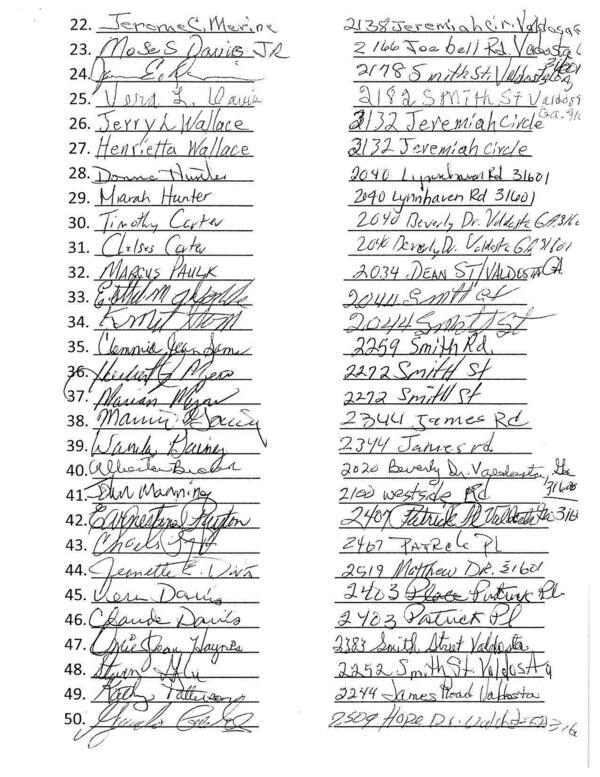 22. Jerome C. Merine 2138 Jeremiah Cir. Valdosta G
23. Moses Davis JR 2166 Joe bell Rd. Valdosta G
24. 2178 Smith St. Valdosta Ga 31601
25. Vera L. Davis 2182 Smith St Valdosta Ga. 316
26. Jerry L Wallace 2132 Jeremiah Circle
27. Henrietta Wallace 2132 Jeremiah Circle
28. Donna Hunter 2040 Lynnhaven Rd 31601
29. Miarah Hunter 2040 Lynnhaven Rd 31601
30. Timothy Carter 2040 Beverly Dr. Valdosta GA, 316
31. Chelsea Carter 2040 Beverly Dr. Valdosta GA, 31601
32. Marcus Paulk 2034 Dean St/Valdosta GA
33. 2044 Smith St
34. 2044 Smith St
35. Clemmie Jean 2259 Smith Rd.
36. Herbert 2272 Smith St
37. Marian 2272 Smith St
38. 2344 James Rd
39. Wanda Gainey 2344 James rd.
40. 2020 Beverly Dr. Valdosta, Ga
41. Manning 2100 westside Rd 31601
42. Earnestine 2407 Patrick Pl Valdosta Ga 316
43. Charles 2407 Patrick Pl
44. Jeanette E. Davis 2519 Matthew DR. 31601
45. Vera Davis 2403 Patrick Pl
46. Claude Davis 2403 Patrick Pl
47. Jean Haynes 2383 Smith Street Valdosta
48. 2252 Smith St. Valdosta
49. Kathy Patterson 2244 James Road Valdosta
50. 2509 Hope Dr. 316